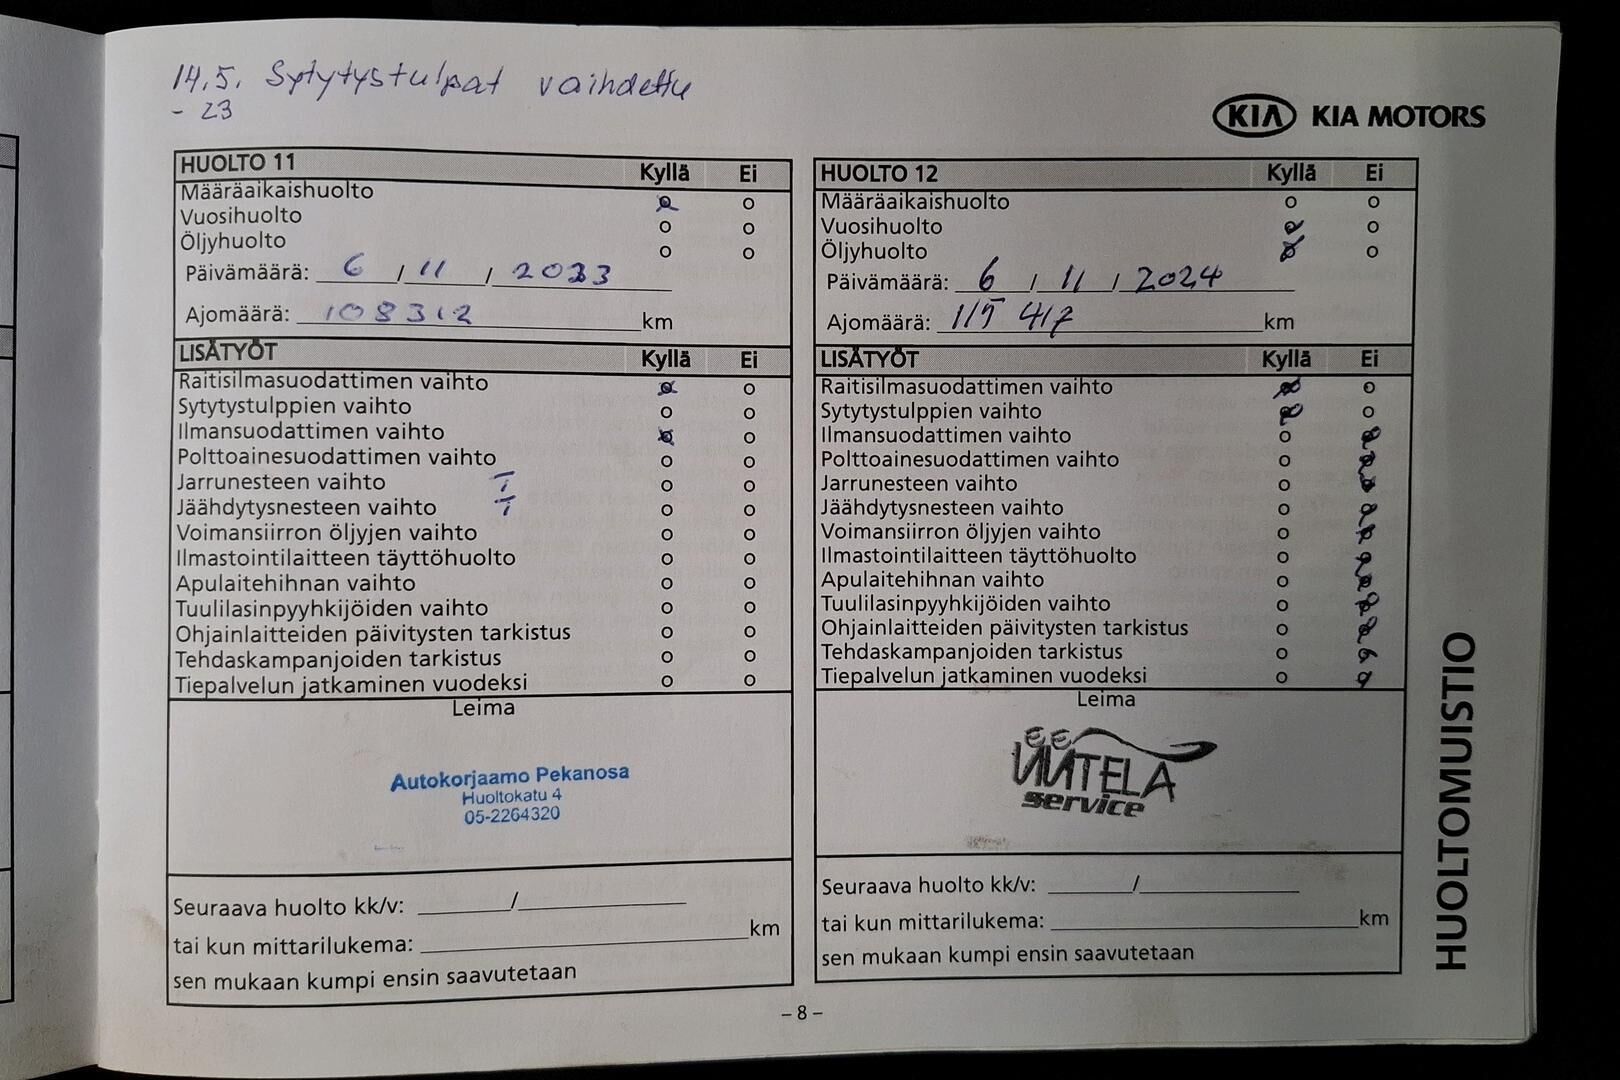 14.5. Sytytystulpat vaihdettu
- 23
KIA KIA MOTORS
HUOLTO 11 Kyllä Ei
Määräaikaishuolto o
Vuosihuolto o o
Öljyhuolto o o
Päivämäärä: 6 / 11 / 2023
Ajomäärä: 108312 km
LISÄTYÖT Kyllä Ei
Raitisilmasuodattimen vaihto o
Sytytystulppien vaihto o o
Ilmansuodattimen vaihto o
Polttoainesuodattimen vaihto o o
Jarrunesteen vaihto T o o
Jäähdytysnesteen vaihto T o o
Voimansiirron öljyjen vaihto o o
Ilmastointilaitteen täyttöhuolto o o
Apulaitehihnan vaihto o o
Tuulilasinpyyhkijöiden vaihto o o
Ohjainlaitteiden päivitysten tarkistus o o
Tehdaskampanjoiden tarkistus o o
Tiepalvelun jatkaminen vuodeksi o o
Leima
Autokorjaamo Pekanosa
Huoltokatu 4
05-2264320
Seuraava huolto kk/v: ________/________________
tai kun mittarilukema: ________________ km
sen mukaan kumpi ensin saavutetaan
HUOLTO 12 Kyllä Ei
Määräaikaishuolto o o
Vuosihuolto o
Öljyhuolto o
Päivämäärä: 6 / 11 / 2024
Ajomäärä: 115 417 km
LISÄTYÖT Kyllä Ei
Raitisilmasuodattimen vaihto o
Sytytystulppien vaihto o
Ilmansuodattimen vaihto o
Polttoainesuodattimen vaihto o
Jarrunesteen vaihto o
Jäähdytysnesteen vaihto o
Voimansiirron öljyjen vaihto o
Ilmastointilaitteen täyttöhuolto o
Apulaitehihnan vaihto o
Tuulilasinpyyhkijöiden vaihto o
Ohjainlaitteiden päivitysten tarkistus o
Tehdaskampanjoiden tarkistus o
Tiepalvelun jatkaminen vuodeksi o
Leima
EE
UUTELA
service
Seuraava huolto kk/v: ________/________________
tai kun mittarilukema: ________________ km
sen mukaan kumpi ensin saavutetaan
HUOLTOMUISTIO
– 8 –